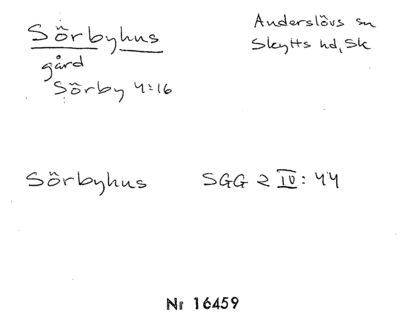 Sörbyhus
gård
Sörby 4:16
Anderslövs sn
Skytts hd, Sk
Sörbyhus SGG 2 IV: 44
Nr 16459